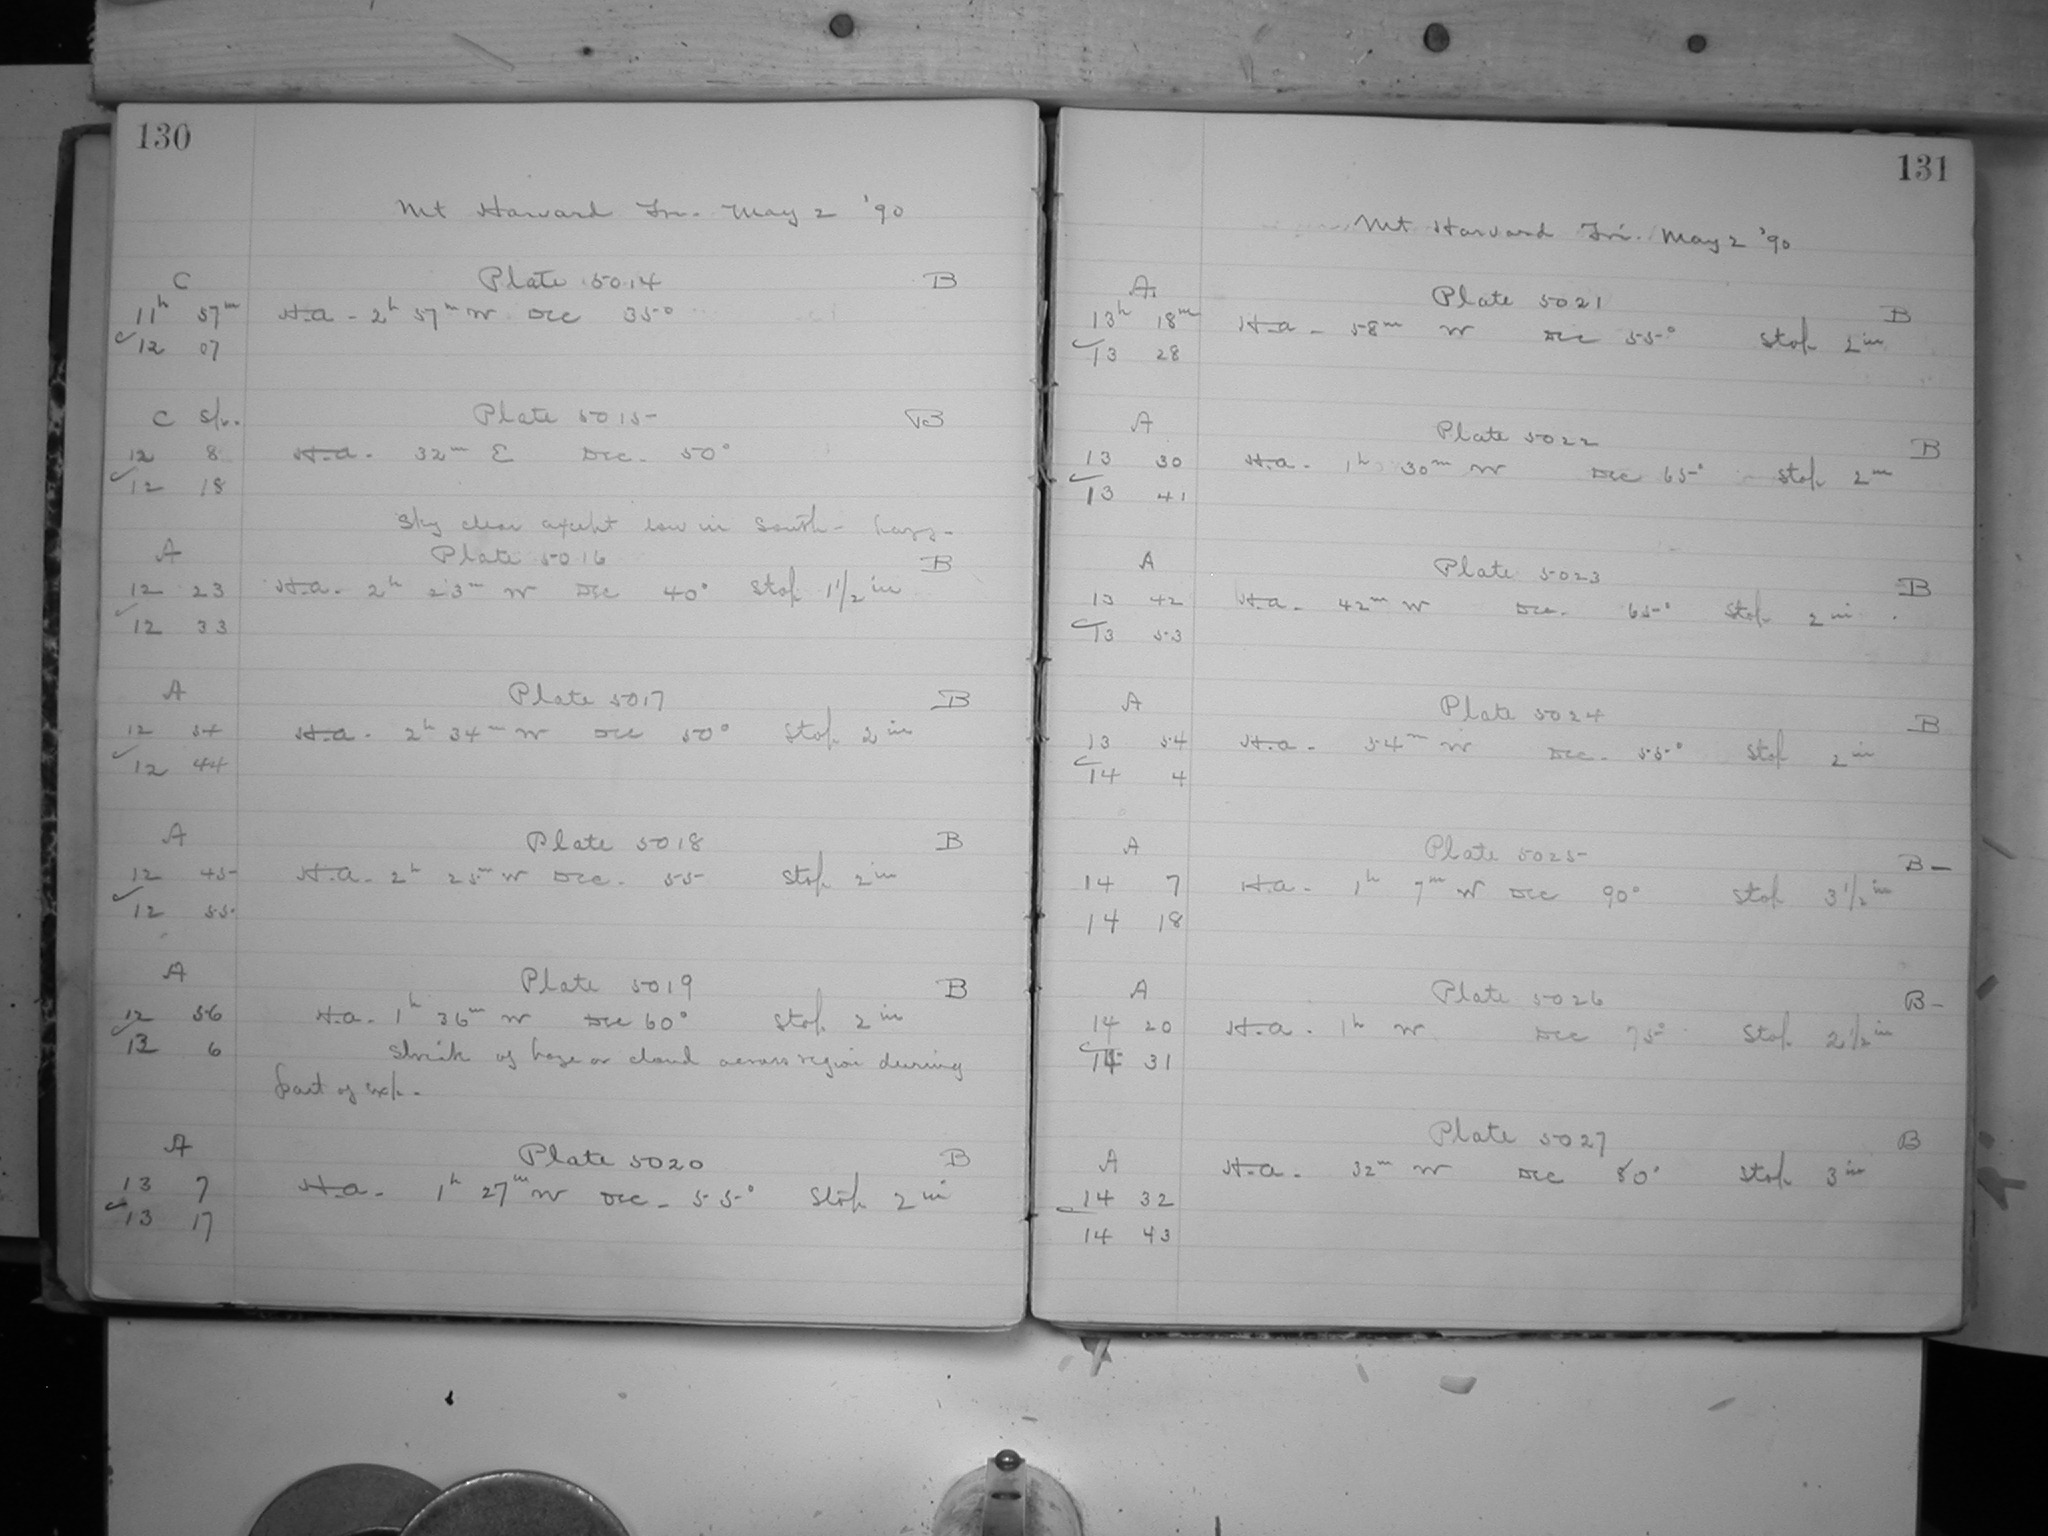 130
Mt Harvard Fri. May 2 '90
C Plate 5014 B
11h 57m H.a. - 2h 57m W Dec 35°
12 07
C S/r. Plate 5015 B
12 8 H.a. - 32m E Dec. 50°
12 18
Sky clear except low in South - hazy -
A Plate 5016 B
12 23 H.a. - 2h 23m W Dec 40° Stop 1 1/2 in
12 33
A Plate 5017 B
12 34 H.a. - 2h 34m W Dec 50° Stop 2 in
12 44
A Plate 5018 B
12 45 H.a. - 2h 25m W Dec. 55 Stop 2 in
12 55
A Plate 5019 B
12 56 H.a. - 1h 36m W Dec 60° Stop 2 in
13 6 Streak of haze or cloud across region during
part of exp. -
A Plate 5020 B
13 7 H.a. - 1h 27m W Dec - 55° Stop 2 in
13 17
131
Mt Harvard Fri. May 2 '90
A Plate 5021 B
13h 18m H.a. - 58m W Dec 55° Stop 2 in
13 28
A Plate 5022 B
13 30 H.a. - 1h 30m W Dec 65° Stop 2 in
13 41
A Plate 5023 B
13 42 H.a. - 42m W Dec. 65° Stop 2 in
13 53
A Plate 5024 B
13 54 H.a. - 54m W Dec. 55° Stop 2 in
14 4
A Plate 5025 B -
14 7 H.a. - 1h 7m W Dec 90° Stop 3 1/2 in
14 18
A Plate 5026 B -
14 20 H.a. - 1h W Dec 75° Stop 2 1/2 in
14 31
Plate 5027 B
A H.a. - 32m W Dec 80° Stop 3 in
14 32
14 43